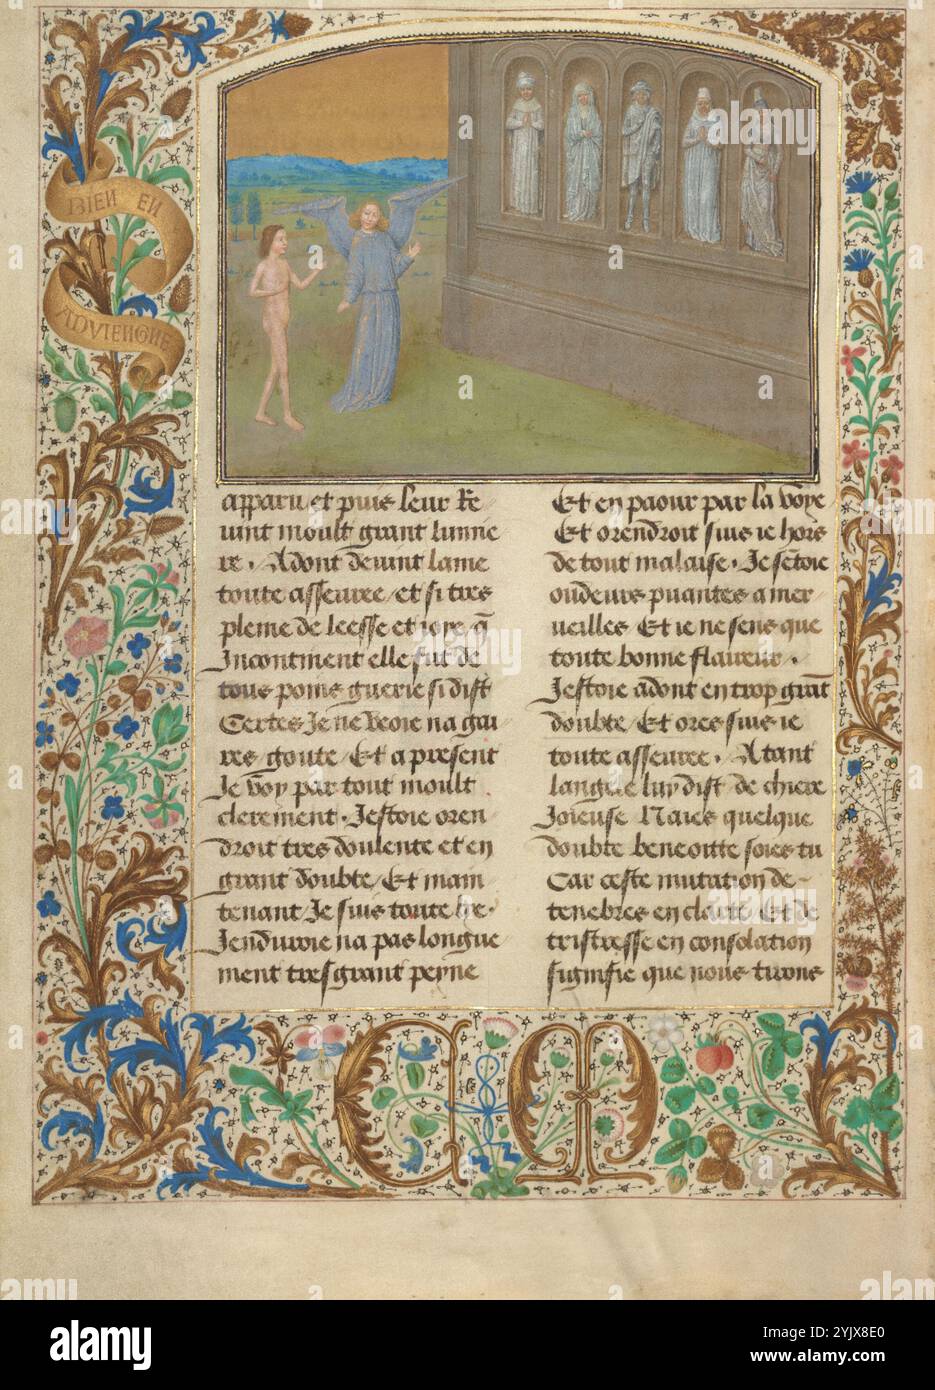 BIEN EN
ADVIENGNE
apparu et puis leur sre
uint moult grant lumie
re. Adont deuint lame
toute asseuree / et si tres
pleine de leesse et ioye q̄
Incontinent elle fut de
tous poins guerie si dist
Certes Je ne veoie na gai
res goute / Et a present
Je voy par tout moult
clerement. Jestoie oren
droit tres doulente et en
grant doubte / Et main
tenant Je suis toute lye.
Jenduroie na pas longue
ment tresgrant peyne
Et en paour par la voye
Et orendroit suis ie hors
de tout malaise. Je sētoie
oudeurs puantes a mer
ueilles Et ie ne sens que
toute bonne flaireur.
Jestoie adont en trop grāt
doubte / Et ores suis ie
toute asseuree. Atant
langele luy dist de chiere
Joieuse Naies quelque
doubte benoitte soies tu
Car ceste mutation de
tenebres en clarte Et de
tristresse en consolation
signifie que nous tirons
C M
alamy
Image ID: 2YJX8E0
www.alamy.com